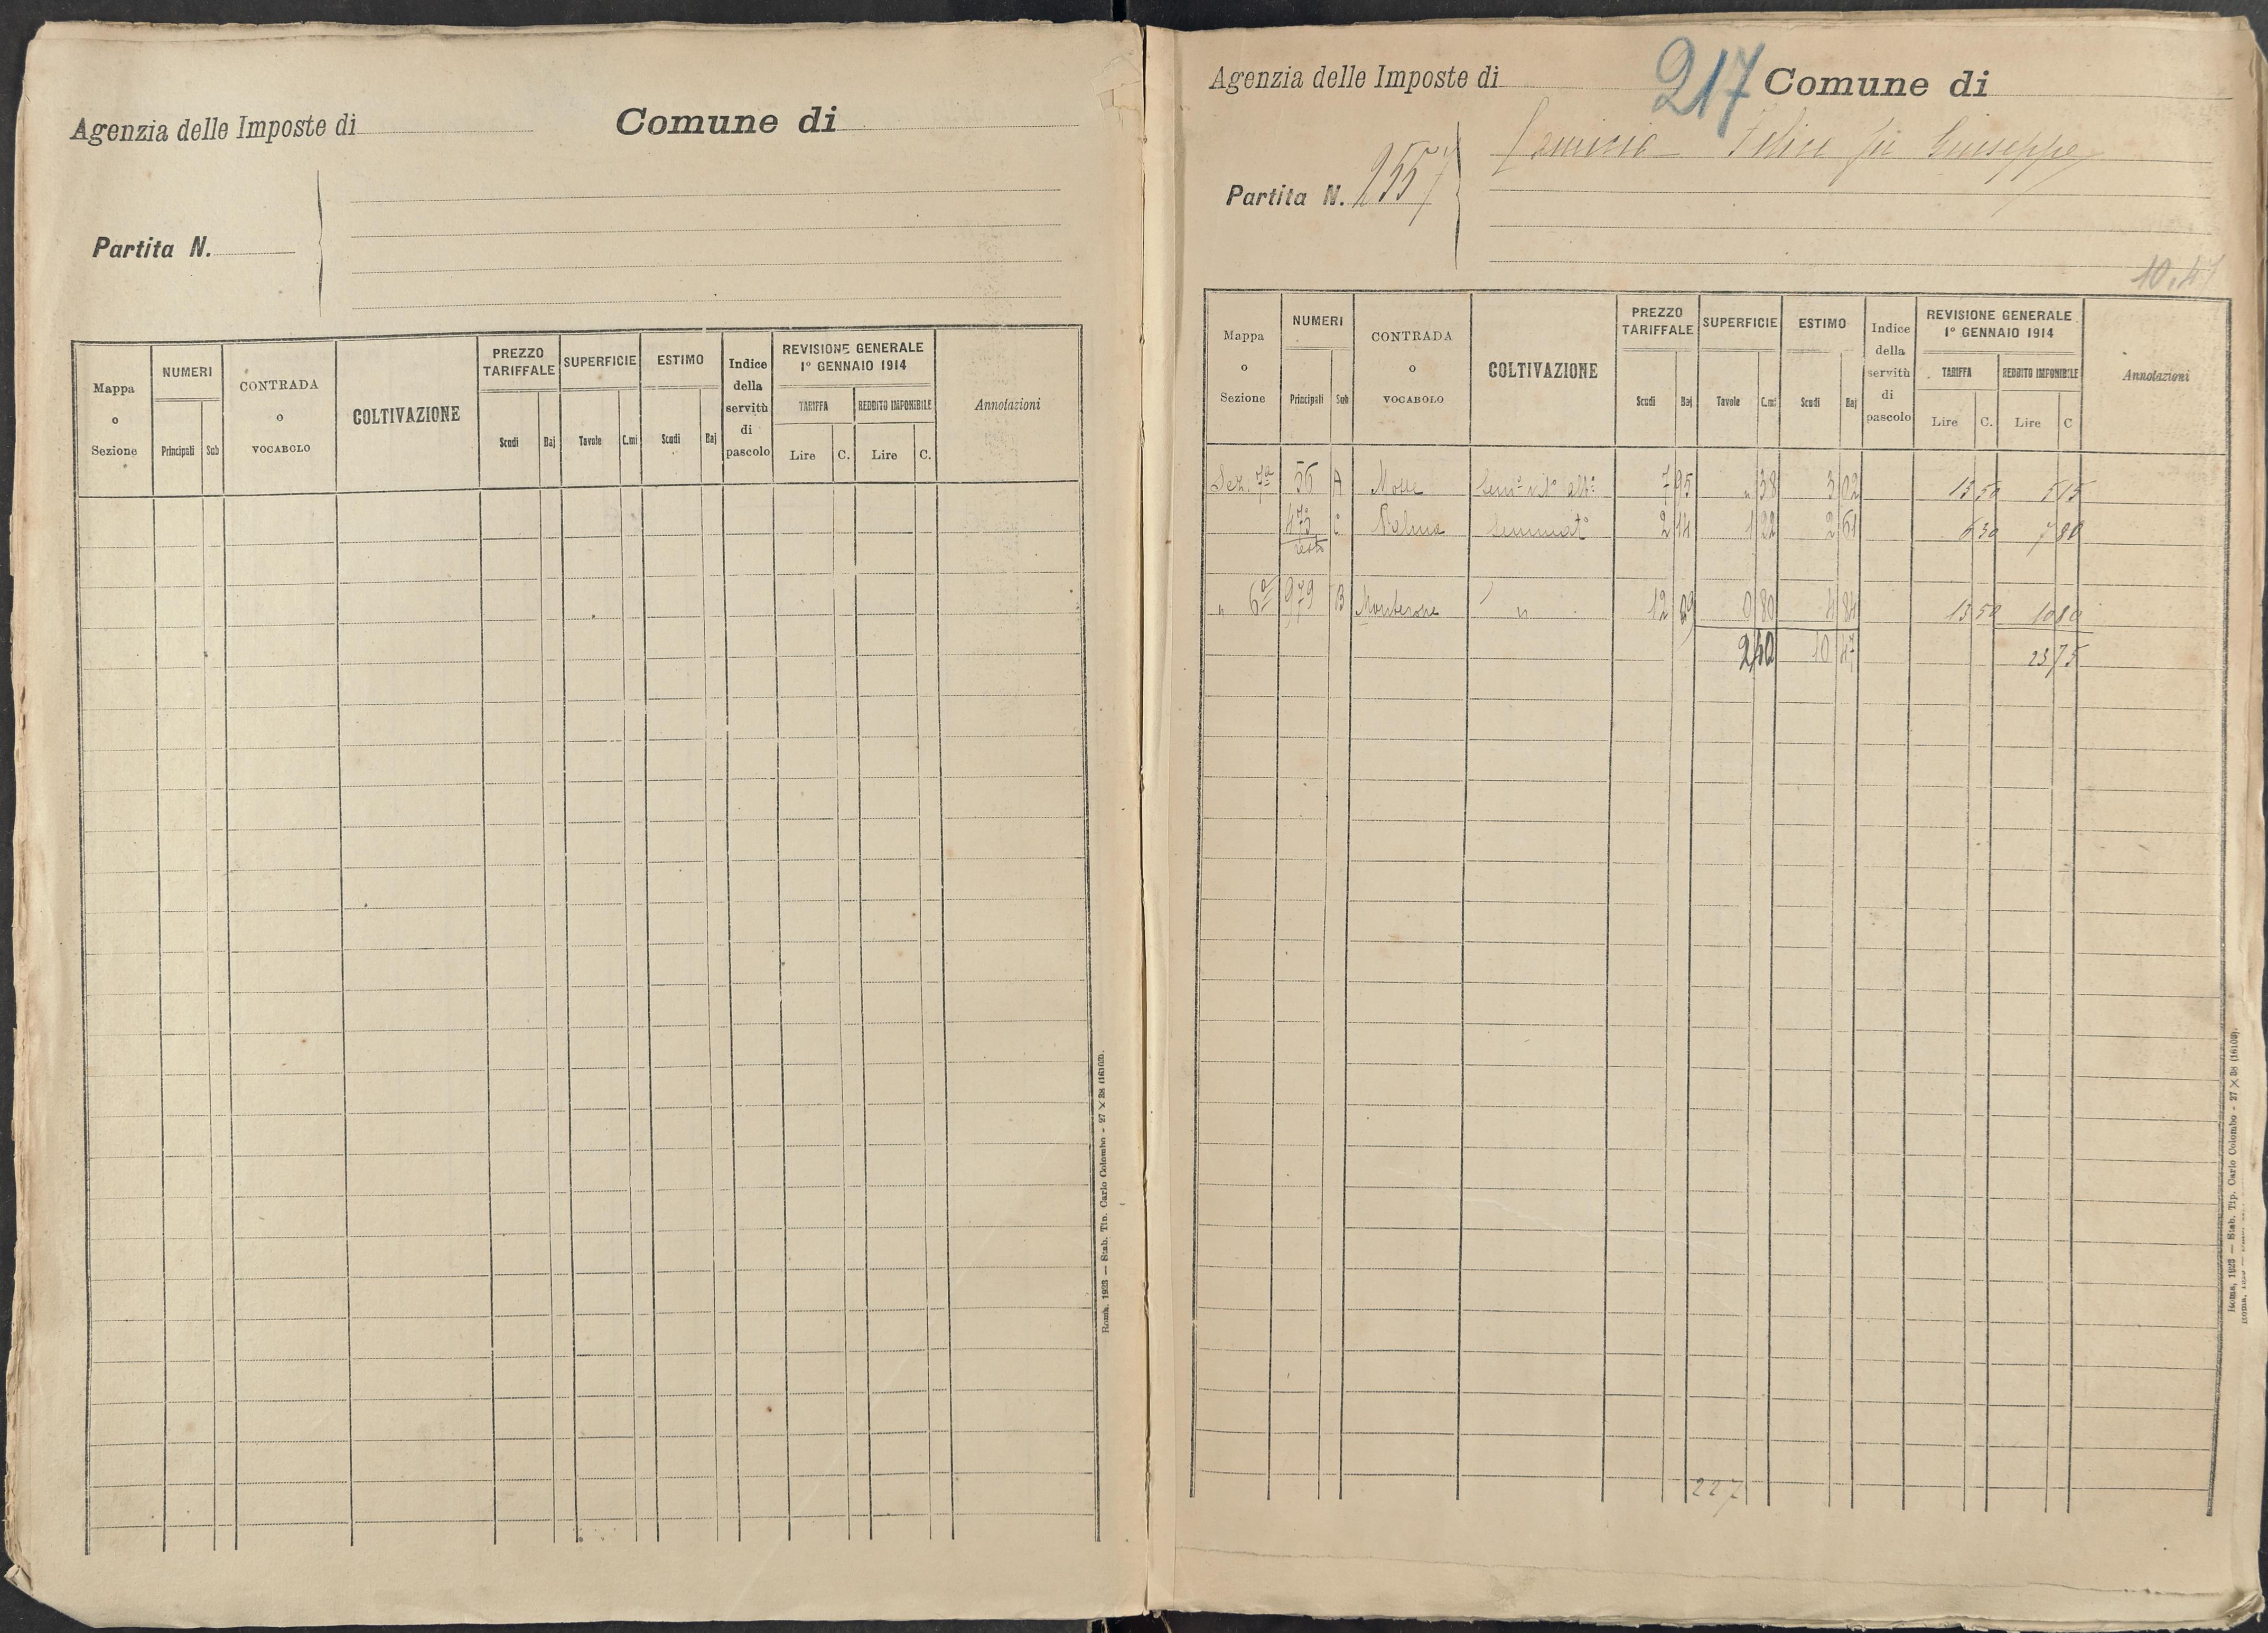 Agenzia delle Imposte di
Comune di
Partita N.
Mappa o Sezione
NUMERI
Principali
Sub
CONTRADA o VOCABOLO
COLTIVAZIONE
PREZZO TARIFFALE
Scudi
Baj
SUPERFICIE
Tavole
C.mi
ESTIMO
Scudi
Baj
Indice della servitù di pascolo
REVISIONE GENERALE 1° GENNAIO 1914
TARIFFA
REDDITO IMPONIBILE
Lire
C.
Lire
C.
Annotazioni
Roma, 1923 — Stab. Tip. Carlo Colombo - 27 × 38 (16102).
217
Agenzia delle Imposte di
Comune di
Felice fu Giuseppe
Partita N. 2557
10.47
Mappa o Sezione
NUMERI
Principali
Sub
CONTRADA o VOCABOLO
COLTIVAZIONE
PREZZO TARIFFALE
Scudi
Baj
SUPERFICIE
Tavole
C.mi
ESTIMO
Scudi
Baj
Indice della servitù di pascolo
REVISIONE GENERALE 1° GENNAIO 1914
TARIFFA
REDDITO IMPONIBILE
Lire
C.
Lire
C
Annotazioni
Sez. 7ª 56 A 7 95 " 38 3 02 13 50 5 15
473 resto C 2 14 1 22 2 61 6 30 7 80
" 6ª 979 B Monterone " 12 09 0 80 4 84 13 50 10 80
2 40 10 47 23 75
227
Roma, 1923 — Stab. Tip. Carlo Colombo - 27 × 38 (16102).